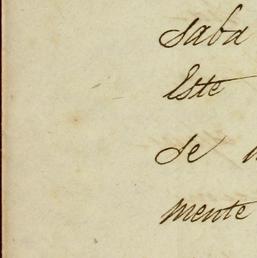 saba
Este
de
mente